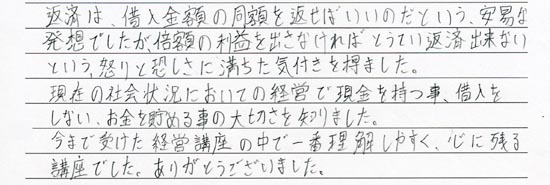 返済は、借入金額の同額を返せばいいのだという、安易な
発想でしたが、倍額の利益を出さなければとうてい返済出来ない
という、怒りと恐しさに満ちた気付きを得ました。
現在の社会状況においての経営で現金を持つ事、借入を
しない、お金を貯める事の大切さを知りました。
今まで受けた経営講座の中で一番理解しやすく、心に残る
講座でした。ありがとうございました。